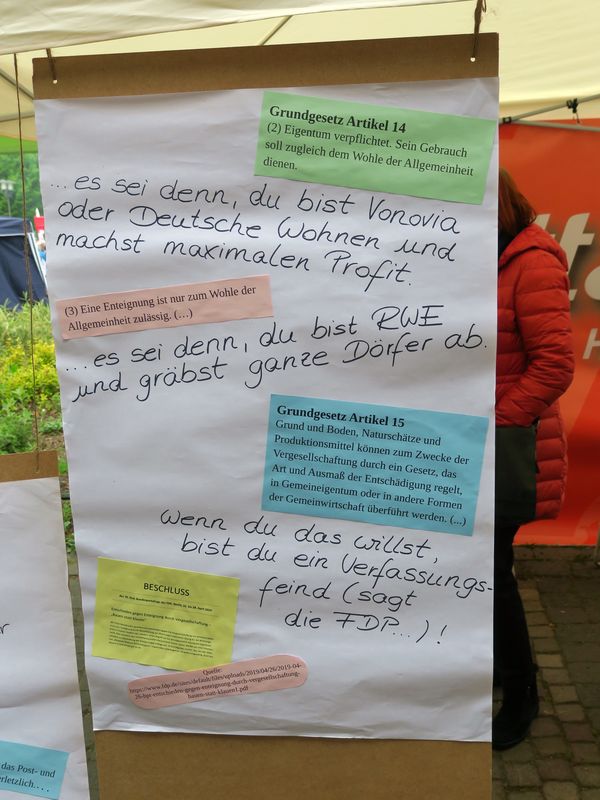 Grundgesetz Artikel 14
(2) Eigentum verpflichtet. Sein Gebrauch
soll zugleich dem Wohle der Allgemeinheit
dienen.
...es sei denn, du bist Vonovia
oder Deutsche Wohnen und
machst maximalen Profit.
(3) Eine Enteignung ist nur zum Wohle der
Allgemeinheit zulässig. (...)
...es sei denn, du bist RWE
und gräbst ganze Dörfer ab.
Grundgesetz Artikel 15
Grund und Boden, Naturschätze und
Produktionsmittel können zum Zwecke der
Vergesellschaftung durch ein Gesetz, das
Art und Ausmaß der Entschädigung regelt,
in Gemeineigentum oder in andere Formen
der Gemeinwirtschaft überführt werden. (...)
wenn du das willst,
bist du ein Verfassungs-
feind (sagt
die FDP...)!
BESCHLUSS
Entschieden gegen Enteignung durch Vergesellschaftung -
„Bauen statt klauen“
Quelle:
https://www.fdp.de/sites/default/files/uploads/2019/04/26/2019-04-
26-bpt-entschieden-gegen-enteignung-durch-vergesellschaftung-
bauen-statt-klauen1.pdf
das Post- und
erletzlich....